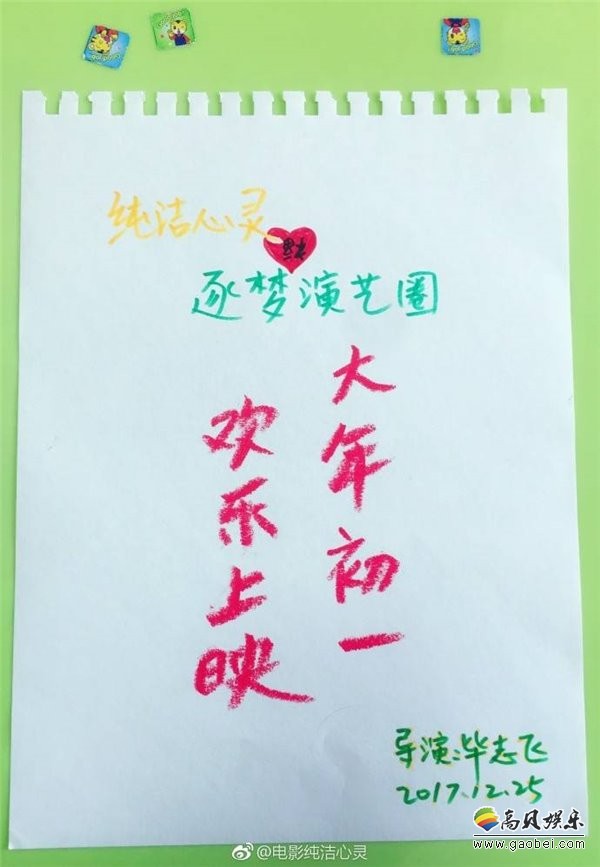 纯洁心灵
逐梦演艺圈
大年初一
欢乐上映
导演:毕志飞
2017.12.25
@电影纯洁心灵
高贝娱乐
www.gaobei.com